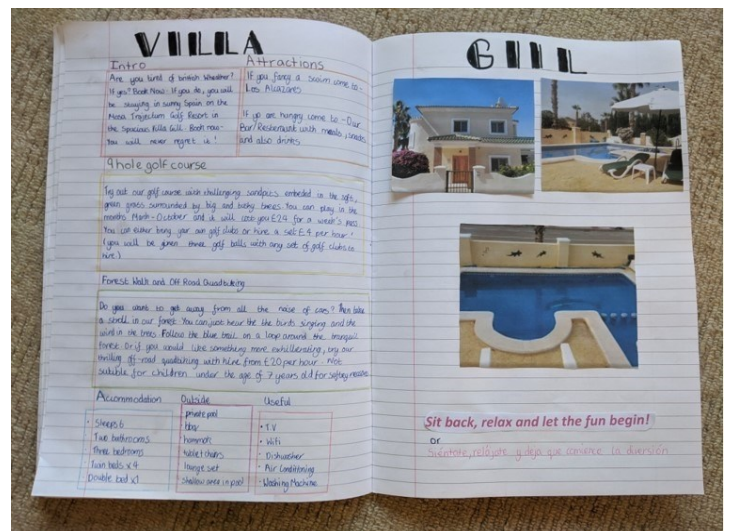 VILLA
Intro
Are you tired of british wheather?
If yes? Book Now. If you do, you will
be staying in sunny Spain on the
Mosa Trajectum Golf Resort in
the spacious Villa Gill. Book now -
You will never regret it!
Attractions
If you fancy a swim come to -
Los Alcazares
If yo are hungry come to - Our
Bar/Resteraunt with meals, snacks
and also drinks
9 hole golf course
Try out our golf course with challenging sandpits embeded in the soft,
green grass surrounded by big and bushy trees. You can play in the
months March - October and it will cost you £24 for a week's pass.
You can either bring your own golf clubs or hire a set £4 per hour!
(you will be given three golf balls with any set of golf clubs to
hire.)
Forest Walk and Off Road Quadbiking
Do you want to get away from all the noise of cars? Then take
a stroll in our forest. You can just hear the the birds singing and the
wind in the trees. Follow the blue trail on a loop around the tranquil
forest. Or if you would like something more exhillerating, try our
thrilling off-road quadbiking with hire from £20 per hour. Not
suitible for children under the age of 7 years old for saftey reasons
Accommodation
• Sleeps 6
Two bathrooms
Three bedrooms
Twin beds x 4
Double bed x1
Outside
private pool
bbq
hammock
table + chairs
lounge set
shallow area in pool
Useful
• TV
• Wifi
• Dishwasher
• Air Conditioning
• Washing Machine
GILL
Sit back, relax and let the fun begin!
or
Siéntate, relájate y deja que comience la diversión